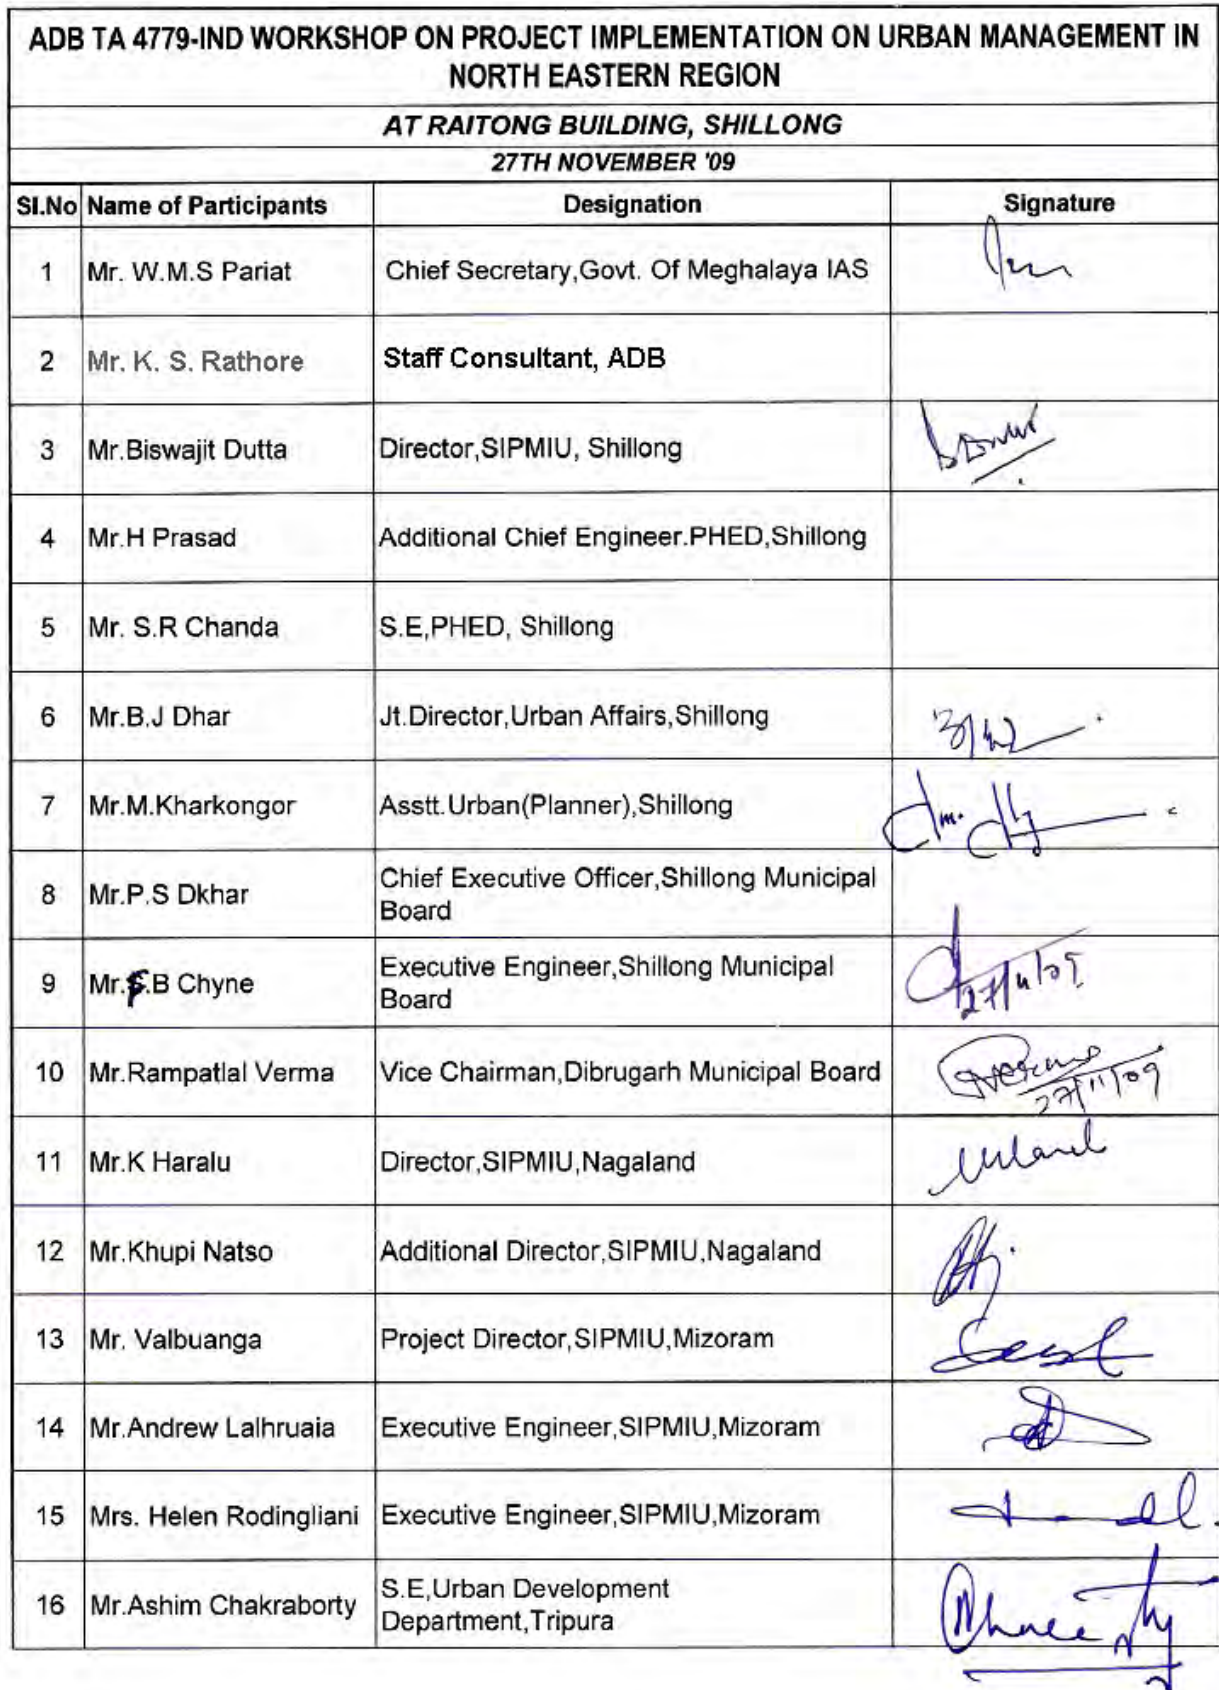 ADB TA 4779-IND WORKSHOP ON PROJECT IMPLEMENTATION ON URBAN MANAGEMENT IN
NORTH EASTERN REGION
AT RAITONG BUILDING, SHILLONG
27TH NOVEMBER '09
Sl.No Name of Participants Designation Signature
1 Mr. W.M.S Pariat Chief Secretary,Govt. Of Meghalaya IAS
2 Mr. K. S. Rathore Staff Consultant, ADB
3 Mr.Biswajit Dutta Director,SIPMIU, Shillong
4 Mr.H Prasad Additional Chief Engineer.PHED,Shillong
5 Mr. S.R Chanda S.E,PHED, Shillong
6 Mr.B.J Dhar Jt.Director,Urban Affairs,Shillong
7 Mr.M.Kharkongor Asstt.Urban(Planner),Shillong
8 Mr.P.S Dkhar Chief Executive Officer,Shillong Municipal
Board
9 Mr. .B Chyne Executive Engineer,Shillong Municipal
Board 27/11/09
10 Mr.Rampatlal Verma Vice Chairman,Dibrugarh Municipal Board
27/11/09
11 Mr.K Haralu Director,SIPMIU,Nagaland
12 Mr.Khupi Natso Additional Director,SIPMIU,Nagaland
13 Mr. Valbuanga Project Director,SIPMIU,Mizoram
14 Mr.Andrew Lalhruaia Executive Engineer,SIPMIU,Mizoram
15 Mrs. Helen Rodingliani Executive Engineer,SIPMIU,Mizoram
16 Mr.Ashim Chakraborty S.E,Urban Development
Department,Tripura